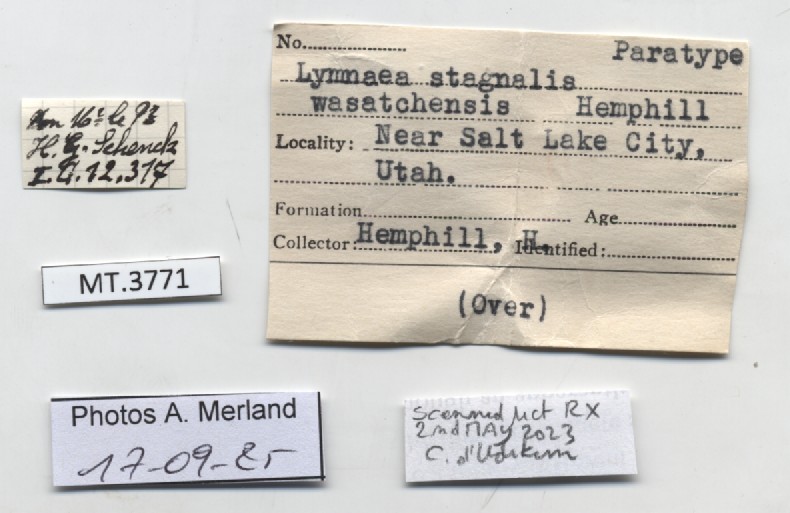 No.
Paratype
Lymnaea stagnalis
wasatchensis Hemphill
Locality: Near Salt Lake City,
Utah.
Formation Age
Collector: Hemphill, H. Identified:
(Over)
H. G. Schenck
I.G.12.317
MT.3771
Photos A. Merland
17-09-25
Scanned µct RX
2nd MAY 2023